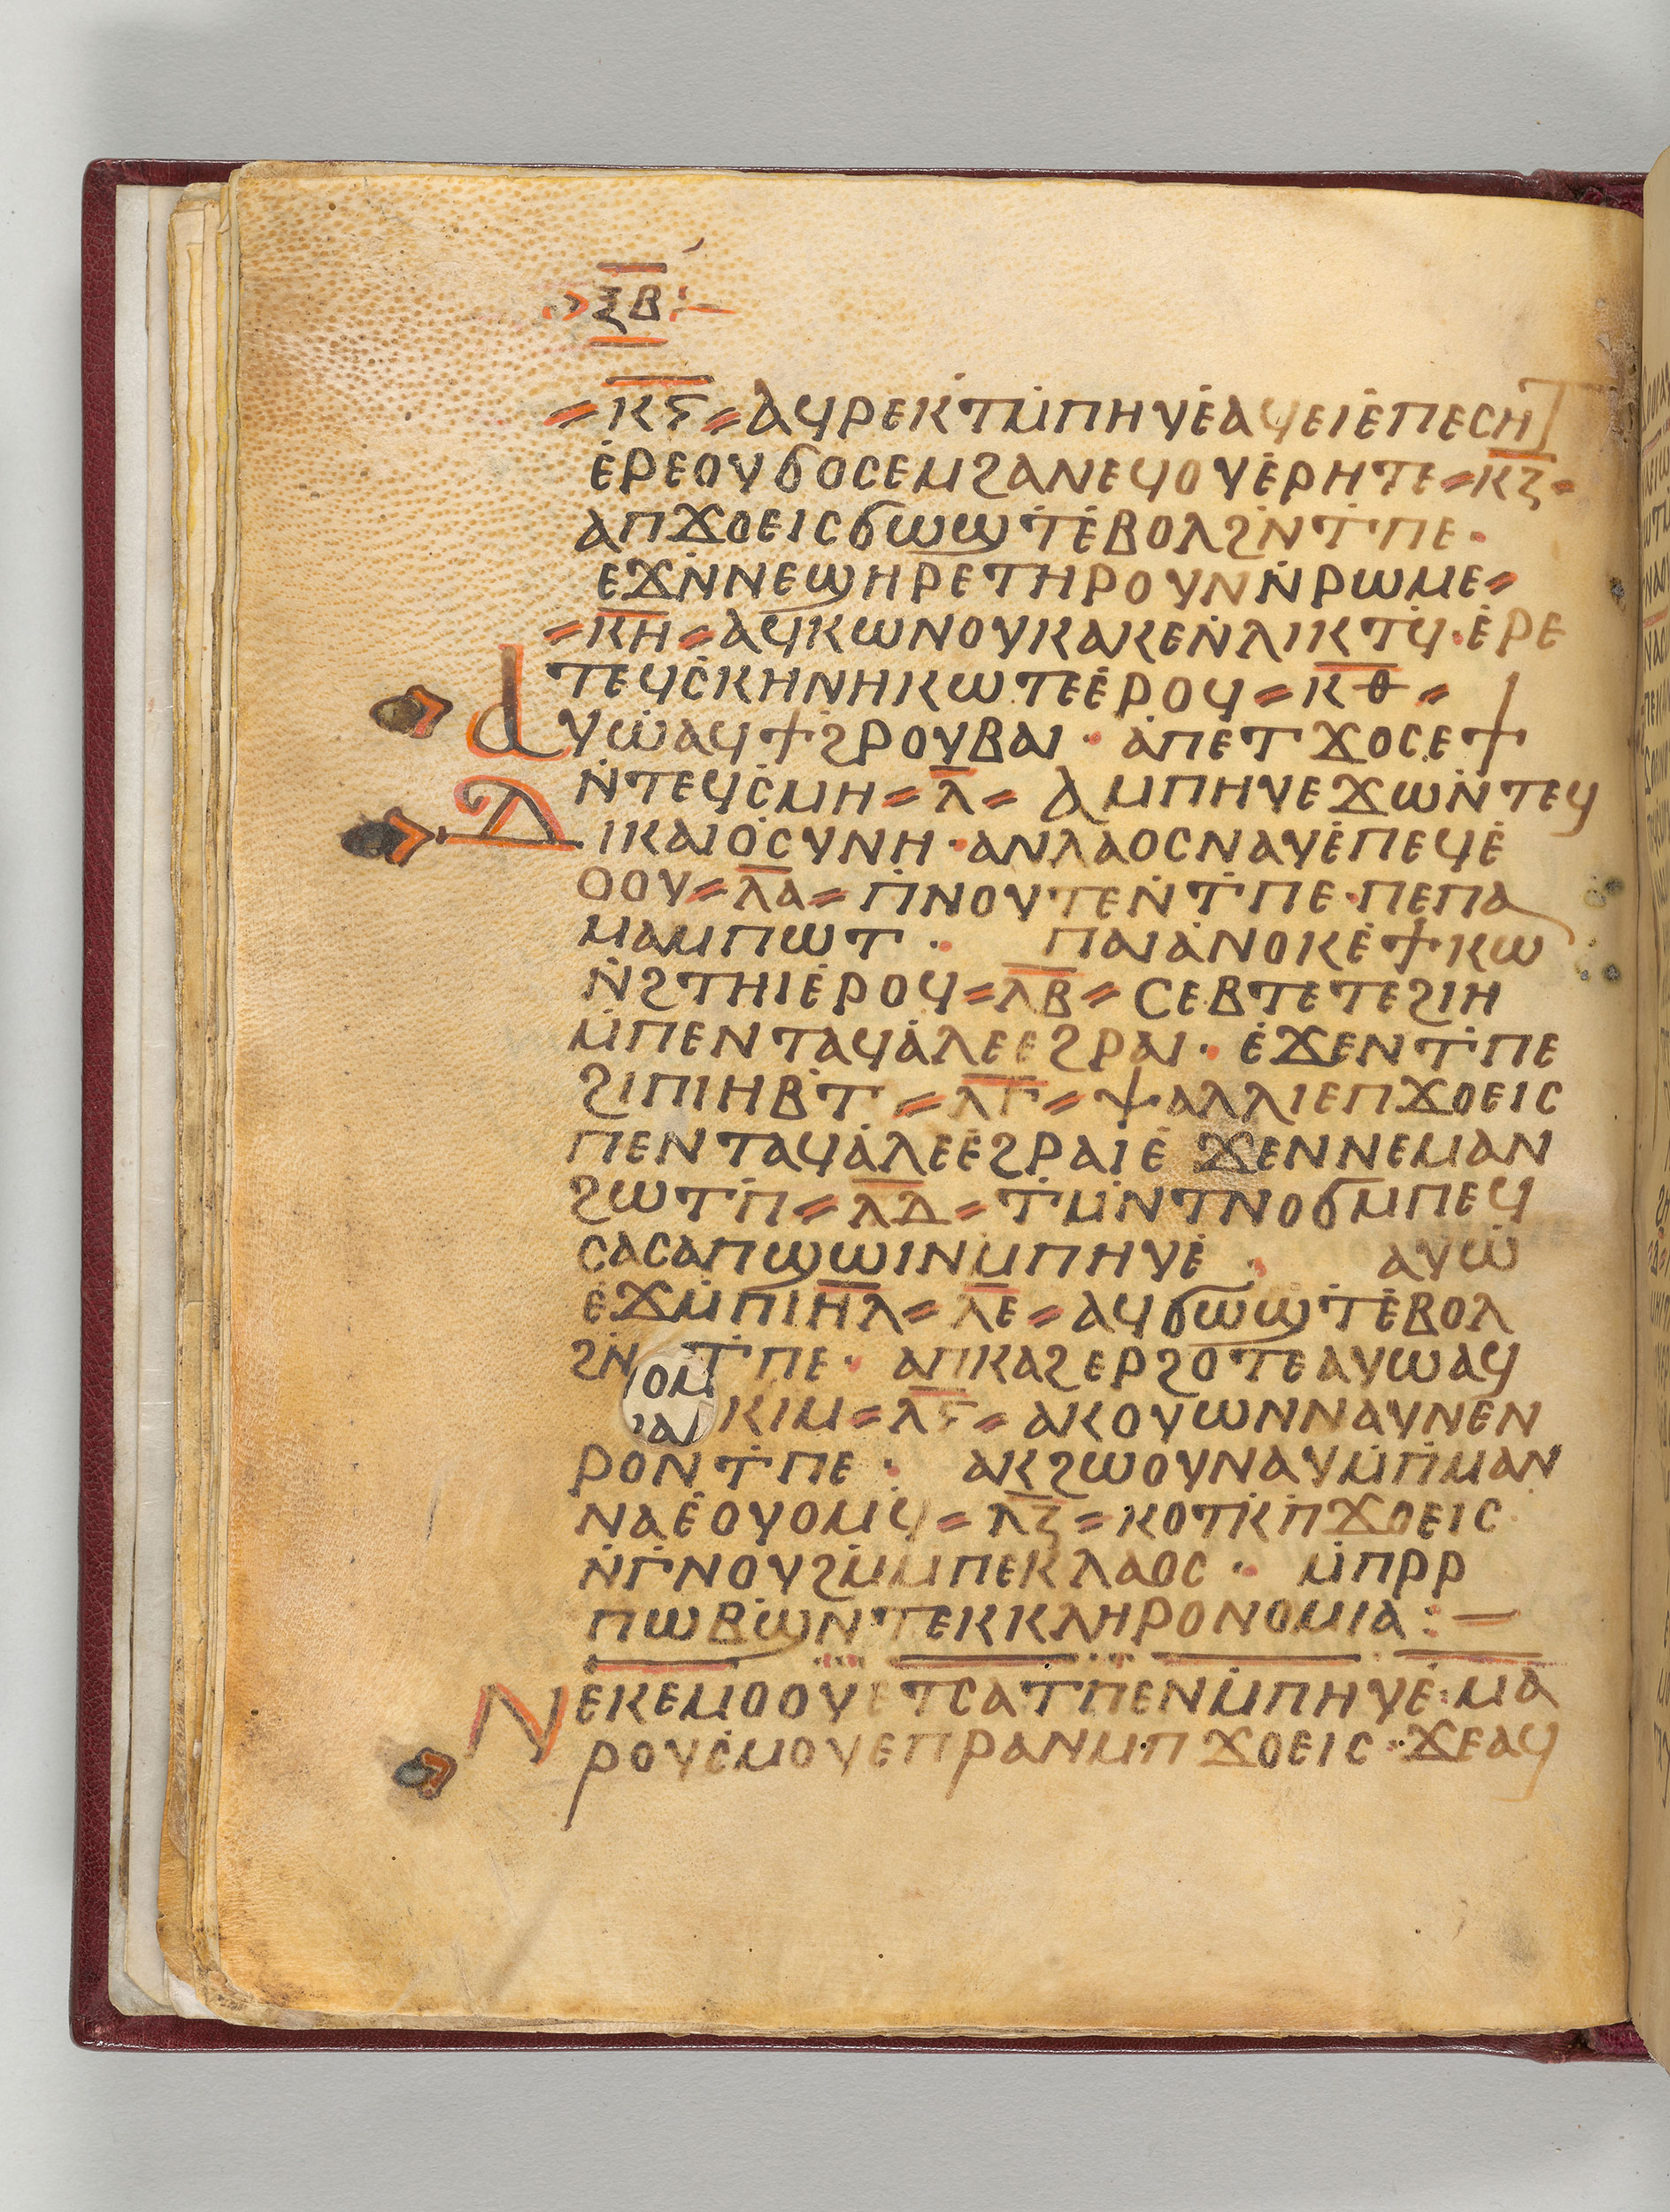 ⲝⲃ
ⲕⲋ ⲁϥⲣⲉⲕⲧⲙ̇ⲡⲏⲩⲉ̇ⲁϥⲉⲓⲉ̇ⲡⲉⲥⲏⲧ
ⲉ̇ⲣⲉⲟⲩϭⲟⲥⲉⲙϩⲁⲛⲉϥⲟⲩⲉ̇ⲣⲏⲧⲉ ⲕⲍ
ⲁⲡϫⲟⲉⲓⲥϭⲱϣⲧ̇ⲉ̇ⲃⲟⲗϩⲛ̇ⲧ̇ⲡⲉ·
ⲉϫⲛ̇ⲛⲉϣⲏⲣⲉⲧⲏⲣⲟⲩⲛⲛ̇ⲣⲱⲙⲉ
ⲕⲏ ⲁϥⲕⲱⲛⲟⲩⲕⲁⲕⲉⲛ̇ⲗⲓⲕⲧϥ̇·ⲉ̇ⲣⲉ
ⲧⲉϥⲥ̇ⲕⲏⲛⲏⲕⲱⲧⲉⲉ̇ⲣⲟϥ ⲕⲑ
ⲁⲩⲱ̇ⲁϥϯϩ̇ⲣⲟⲩⲃⲁⲓ· ⲁ̇ⲡⲉⲧϫⲟⲥⲉϯ
ⲛ̇ⲧⲉϥⲥ̇ⲙⲏ ⲗ ⲁⲙⲡⲏⲩⲉϫⲱⲛ̇ⲧⲉϥ
ⲇⲓⲕⲁⲓⲟ̇ⲥⲩⲛⲏ·ⲁⲛⲗⲁⲟⲥⲛⲁⲩⲉ̇ⲡⲉϥⲉ̇
ⲟⲟⲩ ⲗⲁ ⲡ̇ⲛⲟⲩⲧⲉⲛ̇ⲧ̇ⲡⲉ·ⲡⲉⲡⲁ
ⲙⲁⲙⲡⲱⲧ· ⲡⲁⲓⲁ̇ⲛⲟⲕⲉ̇ϯⲕⲱ
ⲛ̇ϩⲧⲏⲓⲉ̇ⲣⲟϥ ⲗⲃ ⲥⲉⲃⲧⲉⲧⲉϩⲓⲏ
ⲙ̇ⲡⲉⲛⲧⲁϥⲁ̇ⲗⲉⲉϩⲣⲁⲓ· ⲉ̇ϫⲉⲛⲧ̇ⲡⲉ
ϩⲓⲡⲓⲏⲃ̇ⲧ ⲗⲅ ⲯⲁⲗⲗⲓⲉⲡϫⲟⲉⲓⲥ
ⲡⲉⲛⲧⲁϥⲁ̇ⲗⲉⲉ̇ϩⲣⲁⲓⲉ̇ ϫⲉⲛⲛⲉⲙⲁⲛ
ϩⲱⲧⲡ̇ ⲗⲇ ⲧ̇ⲙⲛ̇ⲧⲛⲟϭⲙⲡⲉϥ
ⲥⲁⲥⲁⲡϣⲱⲓⲛⲙⲡⲏⲩⲉ̇· ⲁⲩⲱ̇
ⲉ̇ϫⲙ̇ⲡⲓⲏⲗ ⲗⲉ ⲁϥϭⲱϣⲧ̇ⲉ̇ⲃⲟⲗ
ϩⲛ̇ⲧ̇ⲡⲉ· ⲁⲡⲕⲁϩⲉⲣϩⲟⲧⲉⲁⲩⲱⲁϥ
ⲕⲓⲙ ⲗⲋ ⲁⲕⲟⲩⲱⲛⲛⲛⲁⲩⲛⲉⲛ
ⲣⲟⲛⲧ̇ⲡⲉ· ⲁⲕϩⲱⲟⲩⲛⲁⲩⲙ̇ⲡ̇ⲙⲁⲛ
ⲛⲁⲉ̇ⲟⲩⲟⲙϥ̇ ⲗⲍ ⲕⲟⲧⲕ̇ⲡ̇ϫⲟⲉⲓⲥ
ⲛ̇ⲅ̇ⲛⲟⲩϩⲙ̇ⲙⲡⲉⲕⲗⲁⲟⲥ· ⲙ̇ⲡⲣⲣ
ⲡⲱⲃ̇ϣⲛ̇ⲧⲉⲕⲕⲗⲏⲣⲟⲛⲟⲙⲓⲁ:—
ⲛⲉⲕⲉⲙⲟⲟⲩⲉⲧⲥⲁⲧⲡⲉⲛⲙ̇ⲡⲏⲩⲉ̇·ⲙⲁ
ⲣⲟⲩⲥ̇ⲙⲟⲩⲉⲡⲣⲁⲛⲙⲡϫⲟⲉⲓⲥ·ϫⲉⲁϥ